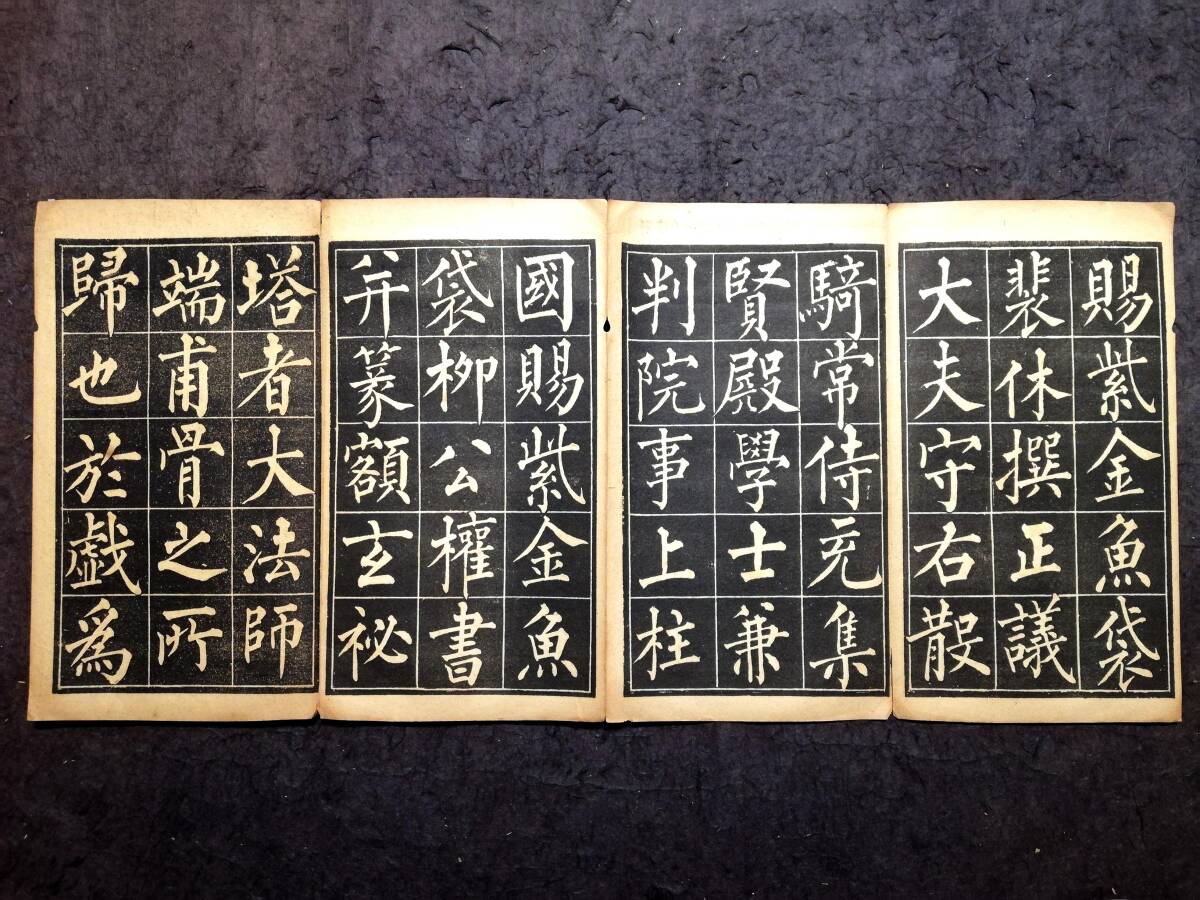 賜紫金魚袋
裴休撰正議
大夫守右散
騎常侍充集
賢殿學士兼
判院事上柱
國賜紫金魚
袋柳公權書
并篆額玄祕
塔者大法師
端甫骨之所
歸也於戯為